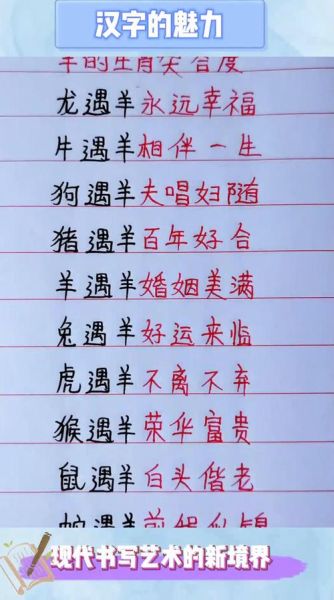 汉字的魅力
羊的生肖契合度
龙遇羊永远幸福
牛遇羊相伴一生
狗遇羊夫唱妇随
猪遇羊百年好合
羊遇羊婚姻美满
兔遇羊好运来临
虎遇羊不离不弃
猴遇羊荣华富贵
鼠遇羊白头偕老
蛇遇羊前程似锦
现代书写艺术的新境界